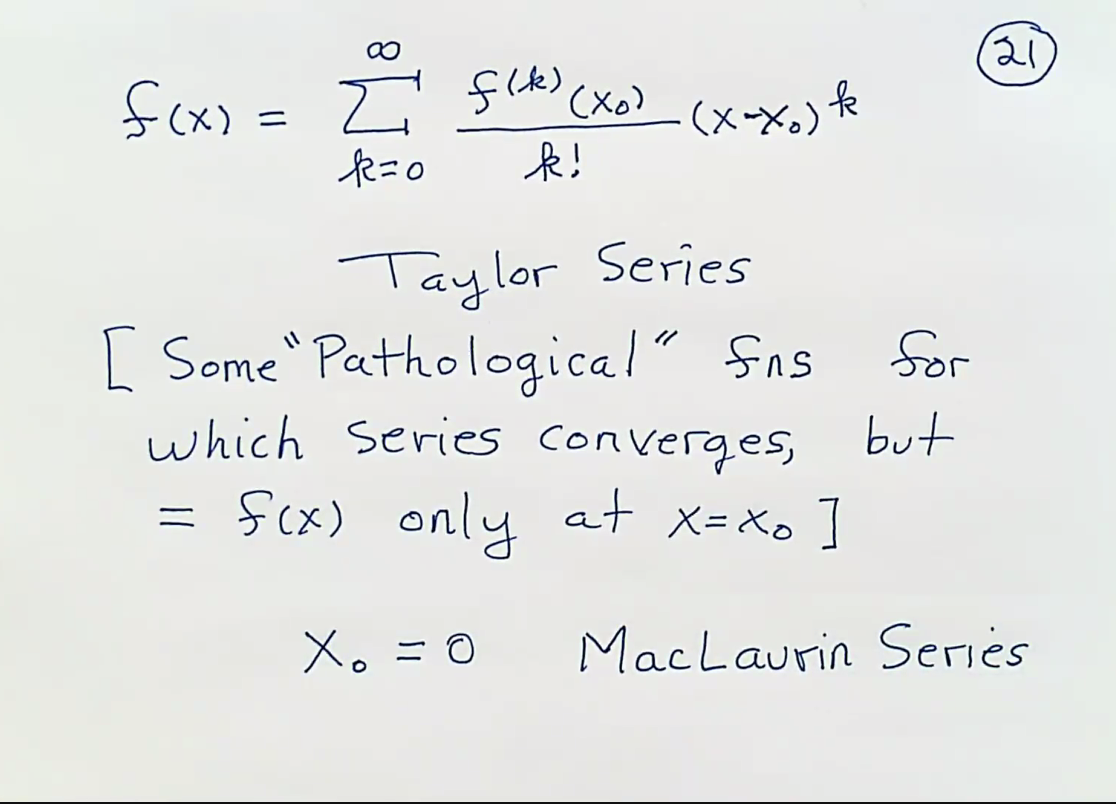 21
f(x) = ∞ Σ k=0 f^(k)(x₀) / k! (x-x₀)^k
Taylor Series
[ Some "Pathological" fns for
which series converges, but
= f(x) only at x=x₀ ]
x₀ = 0 MacLaurin Series